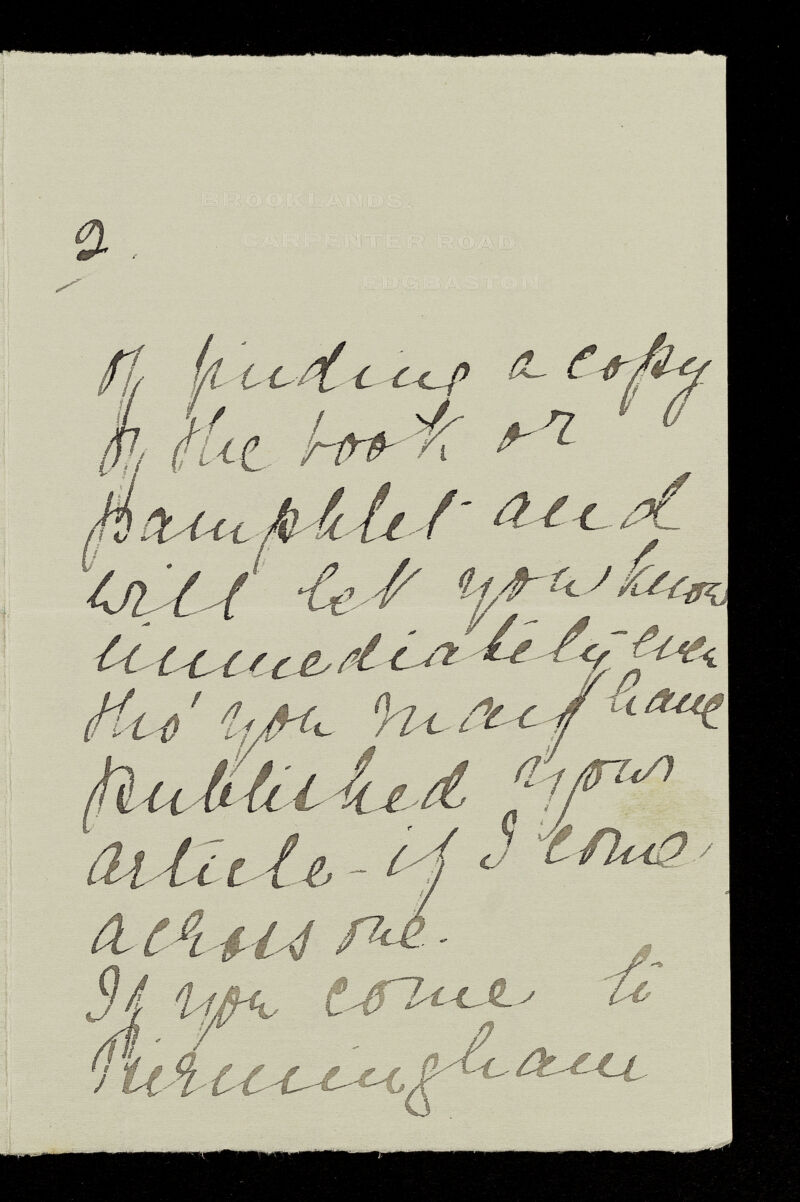 BROOKLANDS.
CARPENTER ROAD
EDGBASTON
2.
of finding a copy
of the book or
pamphlet and
will let you know
immediately even
tho' you may have
published your
article - if I come
across one.
If you come to
Birmingham